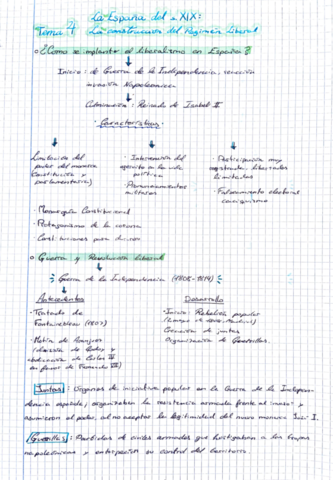 La España del s.XIX:
Tema 4 La construcción del Régimen Liberal
¿Como se implanta el liberalismo en España?
Inicio: de Guerra de la Independencia, reacción
invasión Napoleonica
Culminación: Reinado de Isabel II
Características
Limitación del
poder del monarca
(constitución y
parlamentarios)
Intervención del
ejercito en la vida
política
Pronunciamientos
militares
Participación muy
restringida, libertades
limitadas
Falseamiento electoral
caciquismo
Monarquía Constitucional
Protagonismo de la corona
Constituciones poco
Guerra y Revolución liberal
Guerra de la Independencia (1808-1814)
Antecedentes
Desarrollo
Tratado de
Fontainebleau (1807)
Motín de Aranjuez
(dimisión de Godoy y
abdicación de Carlos IV
en favor de Fernando VII)
Inicio: Rebelión popular
Creación de juntas
Organización de Guerrillas.
Juntas: Organos de iniciativa popular en la Guerra de la Indepen-
dencia española; organizaban la resistencia armada frente al invasor y
asumieron el poder, al no aceptar la legitimidad del nuevo monarca José I.
Guerrillas: Partidas de civiles armados que hostigaban a las tropas
napoleónicas y entorpecían su control del territorio.